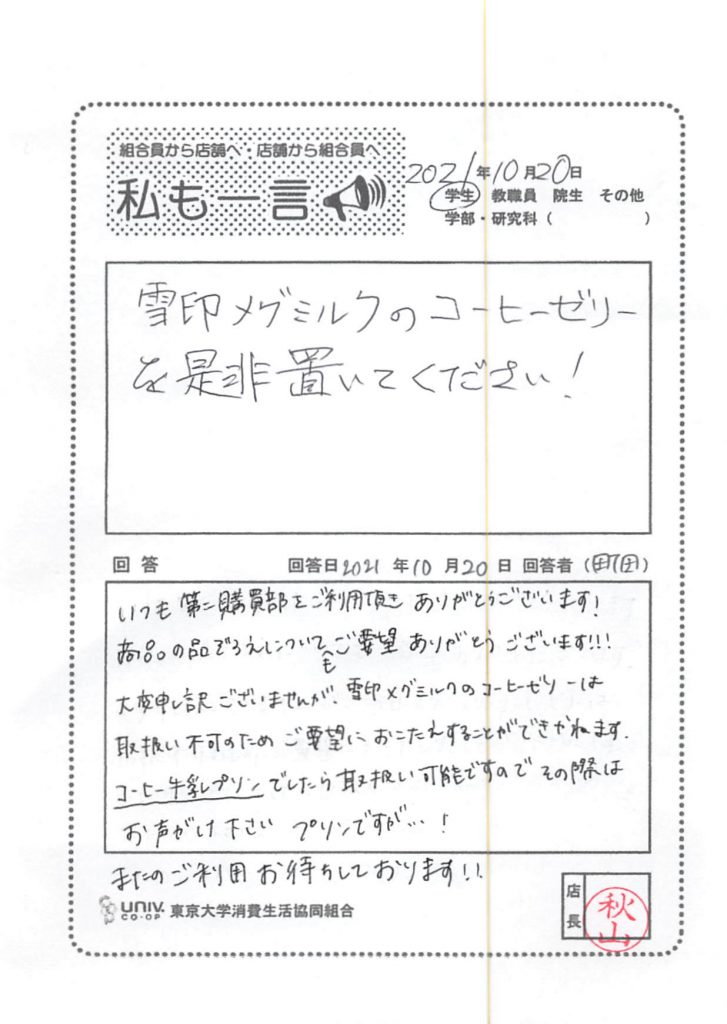 組合員から店舗へ・店舗から組合員へ
私も一言
2021年10月20日
学生 教職員 院生 その他
学部・研究科（ ）
雪印メグミルクのコーヒーゼリー
を是非置いてください！
回答 回答日2021年10月20日 回答者（町田）
いつも第二購買部をご利用頂き ありがとうございます！
商品の品ぞろえについてもご要望ありがとうございます!!!
大変申し訳ございませんが 雪印メグミルクのコーヒーゼリーは
取扱い不可のためご要望におこたえすることができかねます.
コーヒー牛乳プリンでしたら取扱い可能ですのでその際は
お声がけ下さい プリンですが…！
またのご利用お待ちしております!!
UNIV.
CO-OP
東京大学消費生活協同組合
店長
秋山